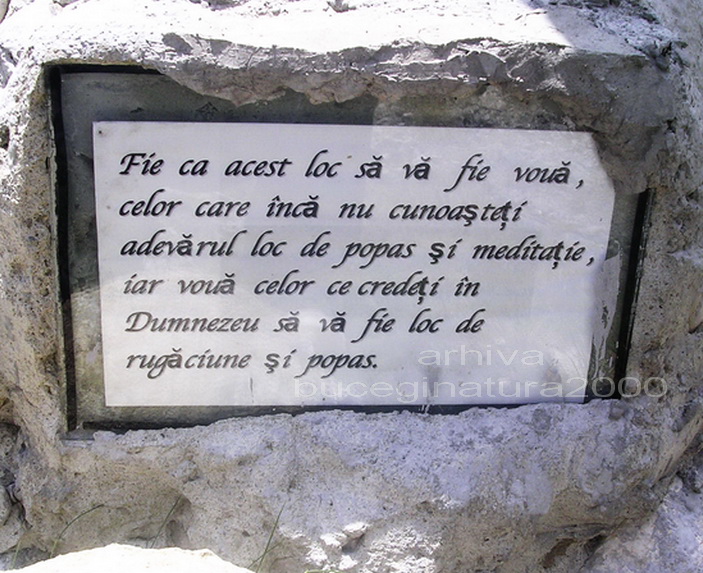 Fie ca acest loc să vă fie vouă,
celor care încă nu cunoaşteţi
adevărul loc de popas şi meditaţie,
iar vouă celor ce credeţi în
Dumnezeu să vă fie loc de
rugăciune şi popas.
arhiva
buceginatura2000